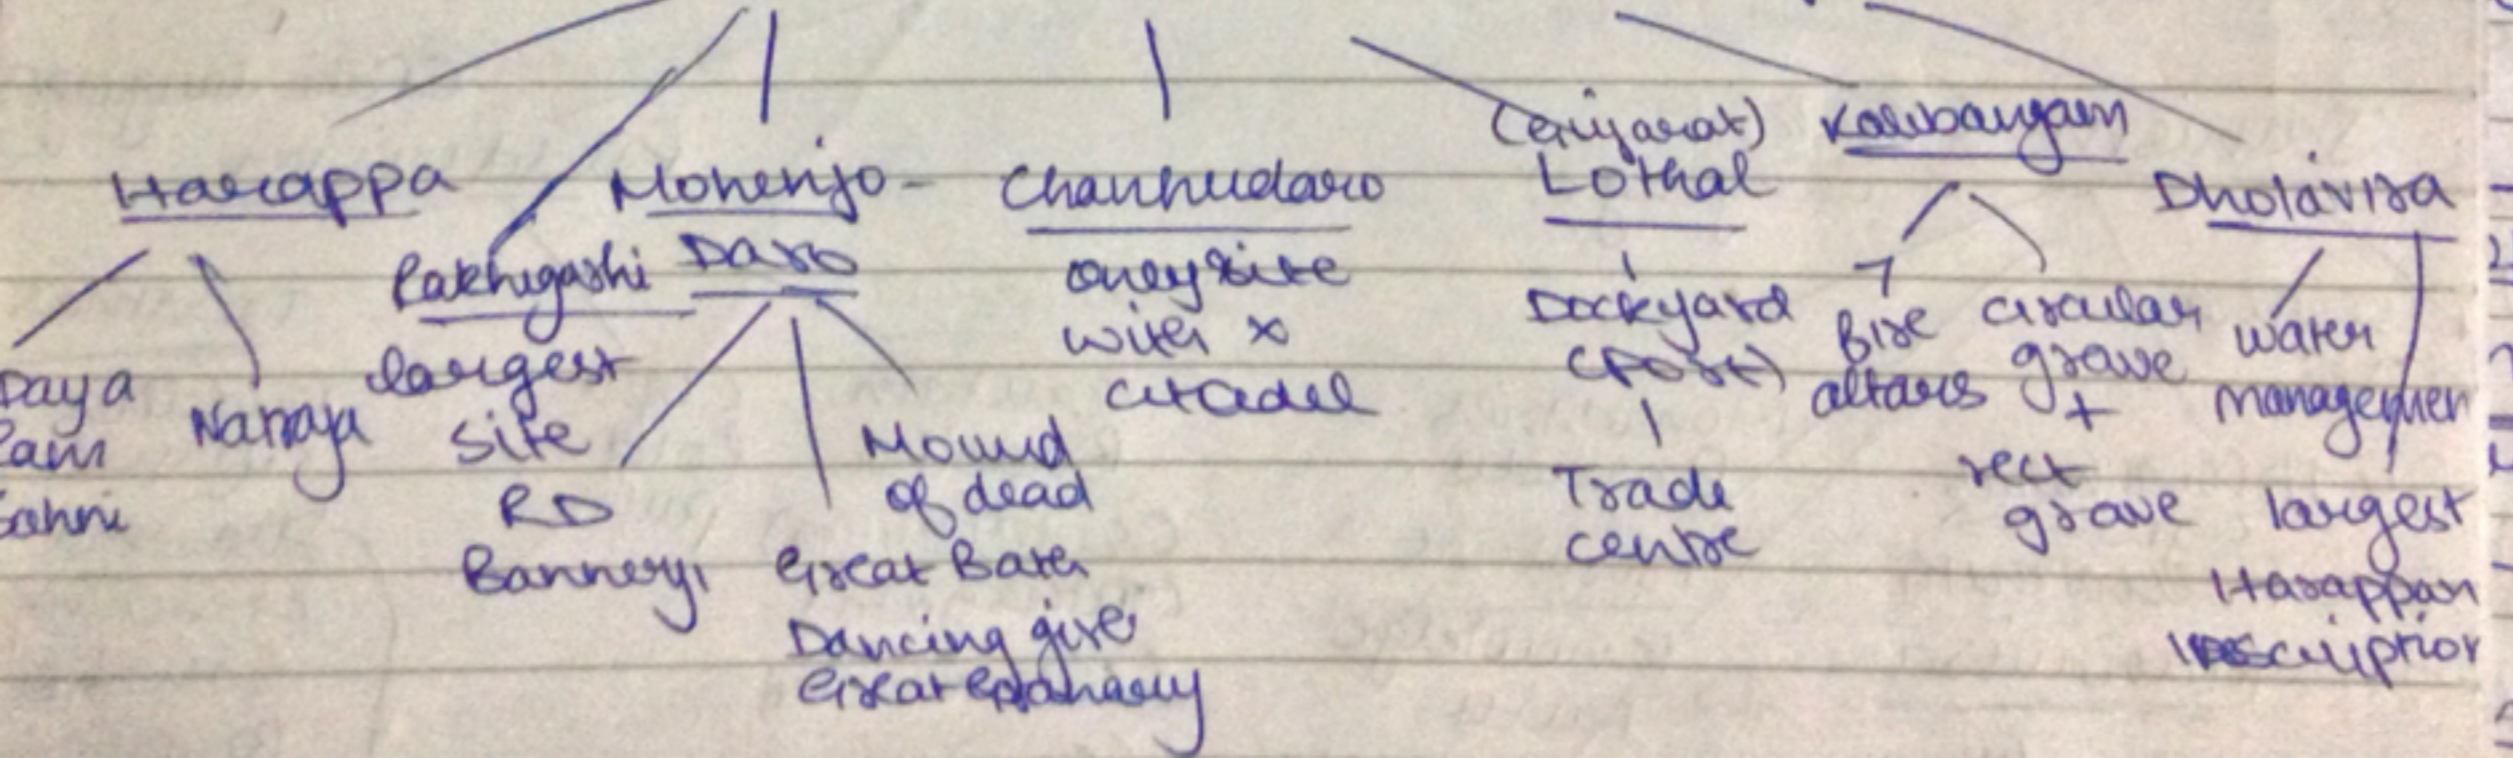 Harappa
Daya
Ram
Sahni
Nataraja
Rakhigarhi
largest
site
Mohenjo-
Daro
RD
Bannerji
Great Bath
Dancing girl
Great Granary
Mound
of dead
Chanhudaro
only site
with x
citadel
(Gujarat)
Lothal
Dockyard
(Port)
Trade
centre
Kalibangan
7
fire
altars
circular
grave
+
rect
grave
Dholavira
water
managemen
largest
Harappan
Inscription